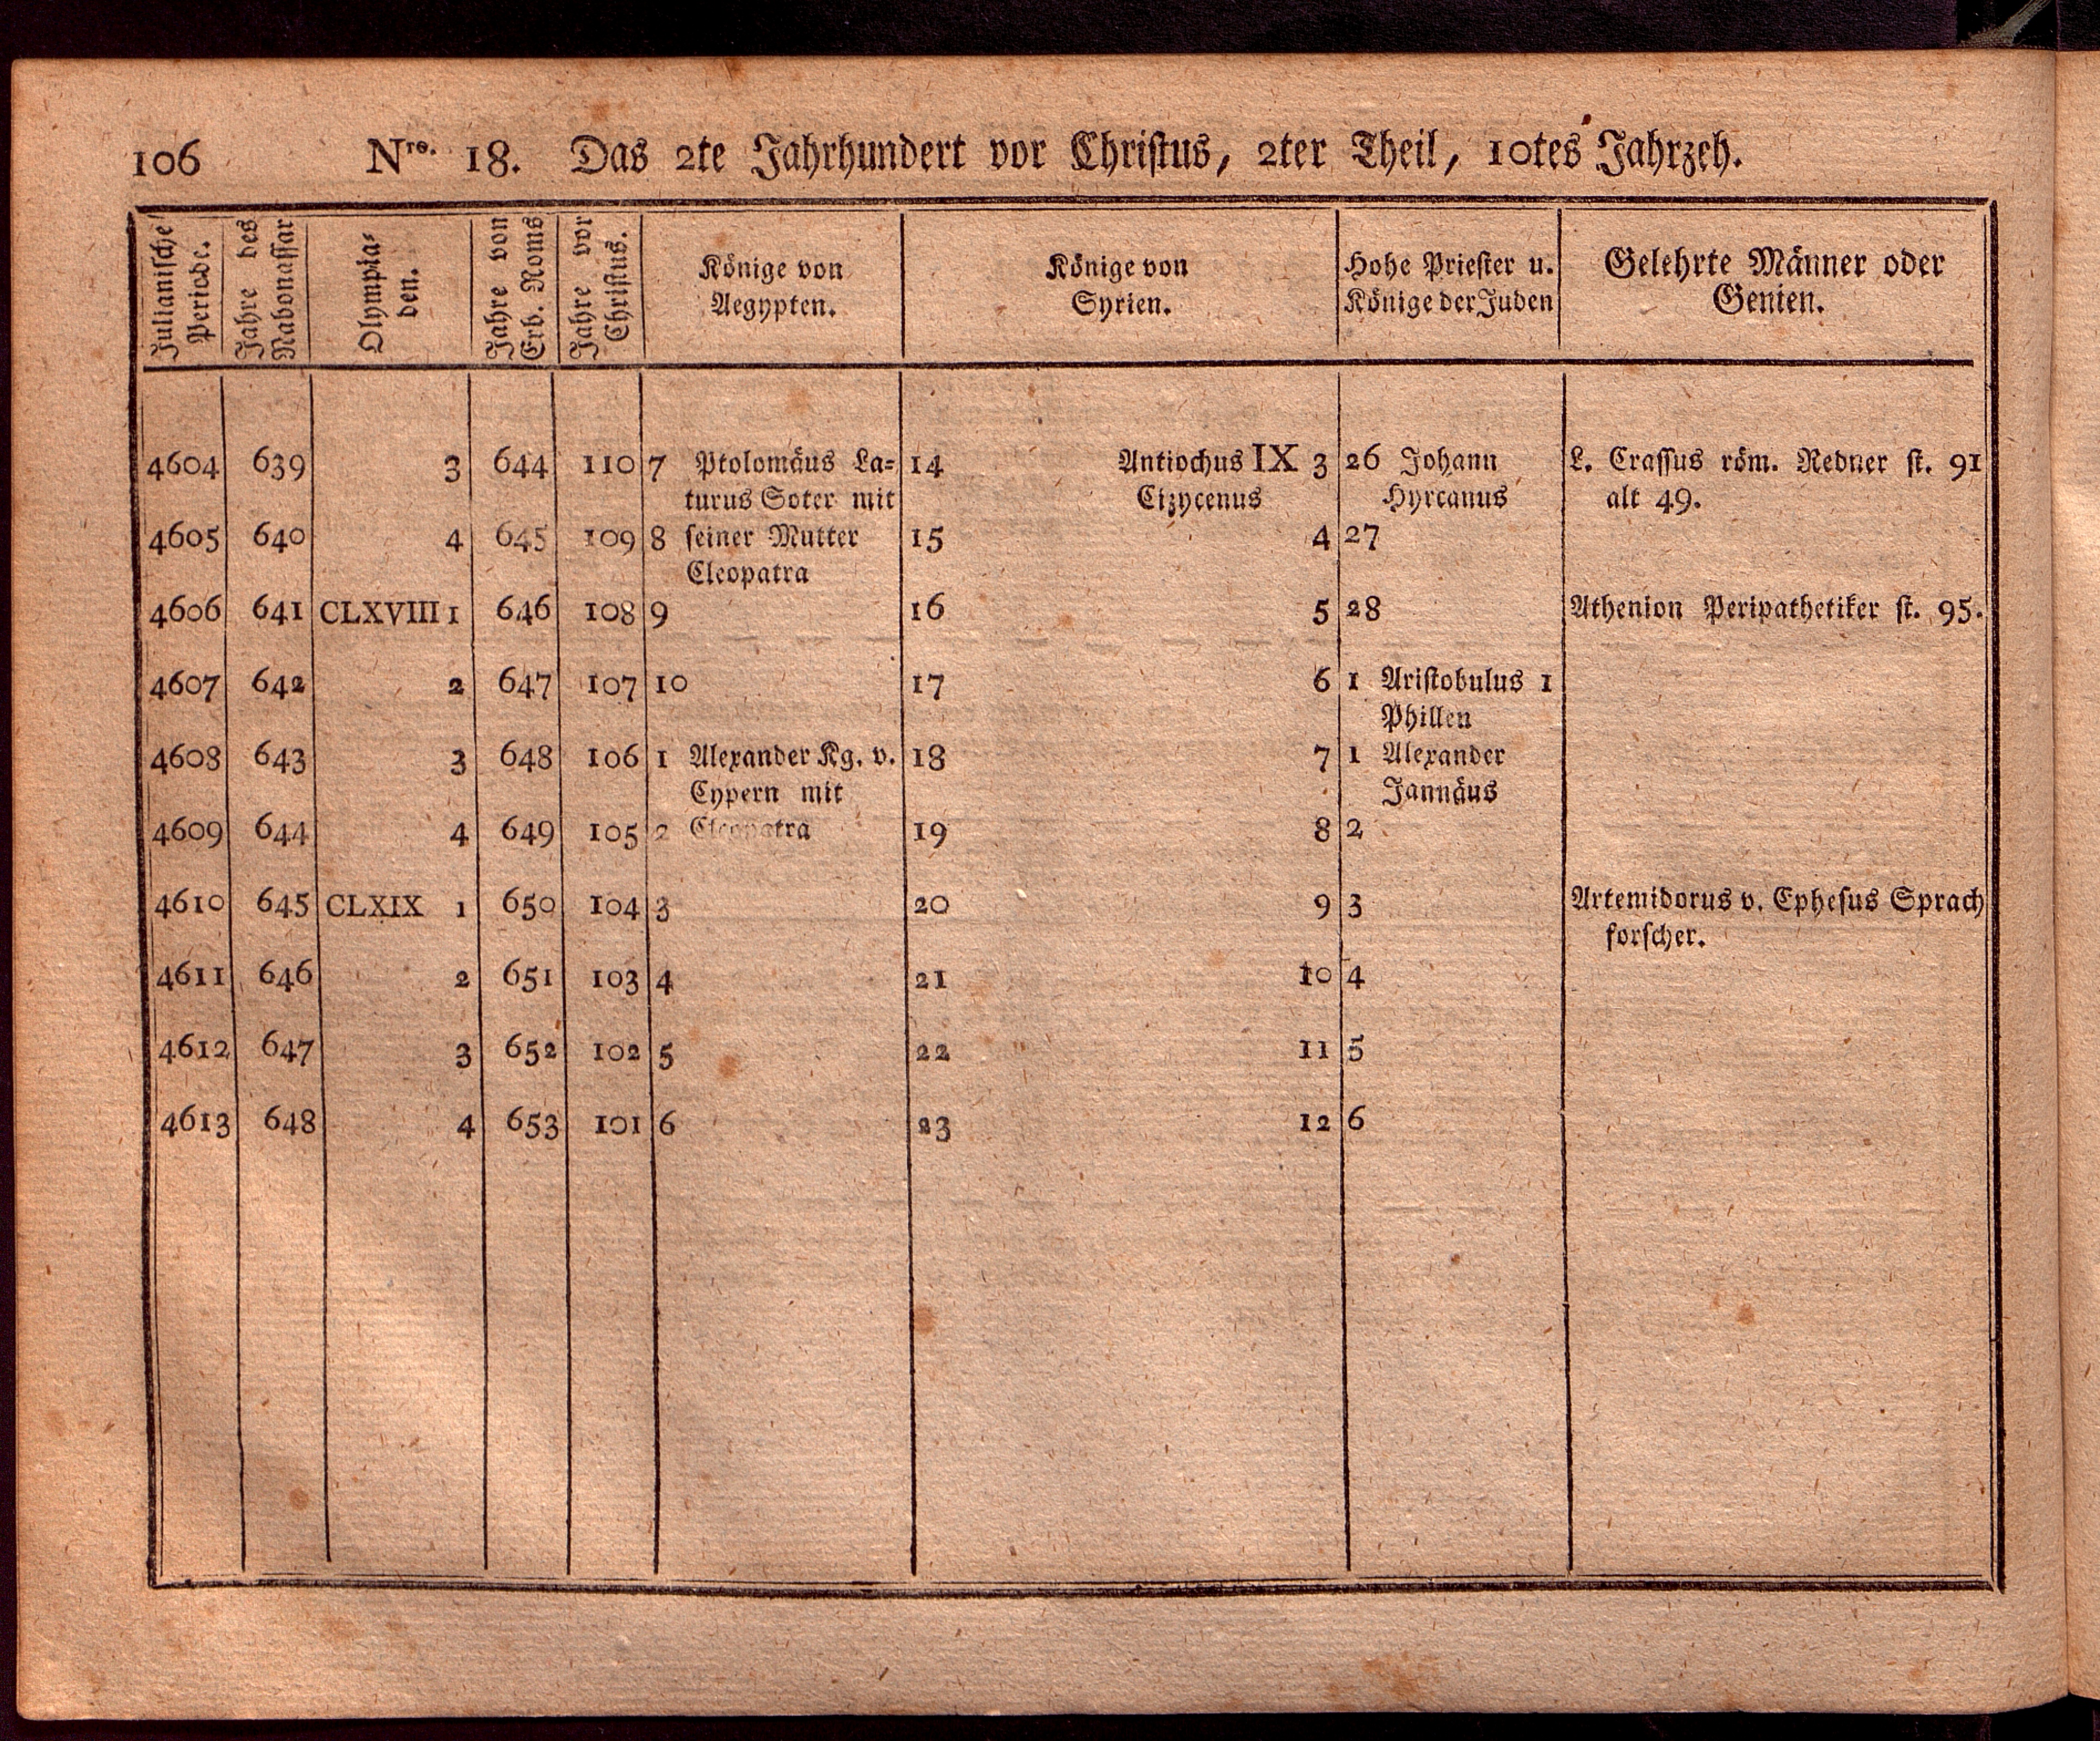 106 Nro. 18. Das 2te Jahrhundert vor Christus, 2ter Theil, 10tes Jahrzeh.
Julianische Periode.
Jahre des Nabonassar
Olympia-
den.
Jahre von Erb. Roms
Jahre vor Christus.
Könige von
Aegypten.
Könige von
Syrien.
Hohe Priester u.
Könige der Juden
Gelehrte Männer oder
Genien.
4604 639 3 644 110 7 Ptolomäus La- 14 Antiochus IX 3 26 Johann L. Crassus röm. Redner st. 91
turus Soter mit Cizycenus Hyrcanus alt 49.
4605 640 4 645 109 8 seiner Mutter 15 4 27
Cleopatra
4606 641 CLXVIII 1 646 108 9 16 5 28 Athenion Peripathetiker st. 95.
4607 642 2 647 107 10 17 6 1 Aristobulus 1
Phillen
4608 643 3 648 106 1 Alexander Kg. v. 18 7 1 Alexander
Cypern mit Jannäus
4609 644 4 649 105 2 Cleopatra 19 8 2
4610 645 CLXIX 1 650 104 3 20 9 3 Artemidorus v. Ephesus Sprach
forscher.
4611 646 2 651 103 4 21 10 4
4612 647 3 652 102 5 22 11 5
4613 648 4 653 101 6 23 12 6